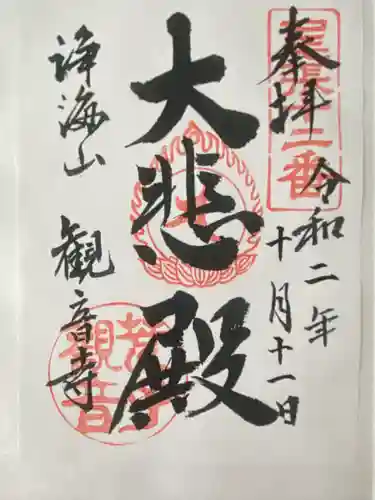 奉拝
尾張
番
令和二年
十月十一日
大悲殿
淨海山 観音寺
荒子
観音